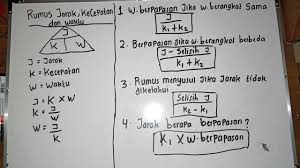 Rumus Jarak, Kecepatan
dan Waktu
J
K W
J = Jarak
K = Kecepatan
W = Waktu
J = K x W
K = J
W
W = J
K
1 W. berpapasan Jika W. berangkat Sama
J
K1 + K2
2. Berpapasan Jika W berangkat berbeda
J - Selisih J
K1 + K2
3. Rumus menyusul Jika Jarak tidak
diketahui
Selisih J
K2 - K1
4. Jarak berapa berpapasan?
K1 x W. berpapasan